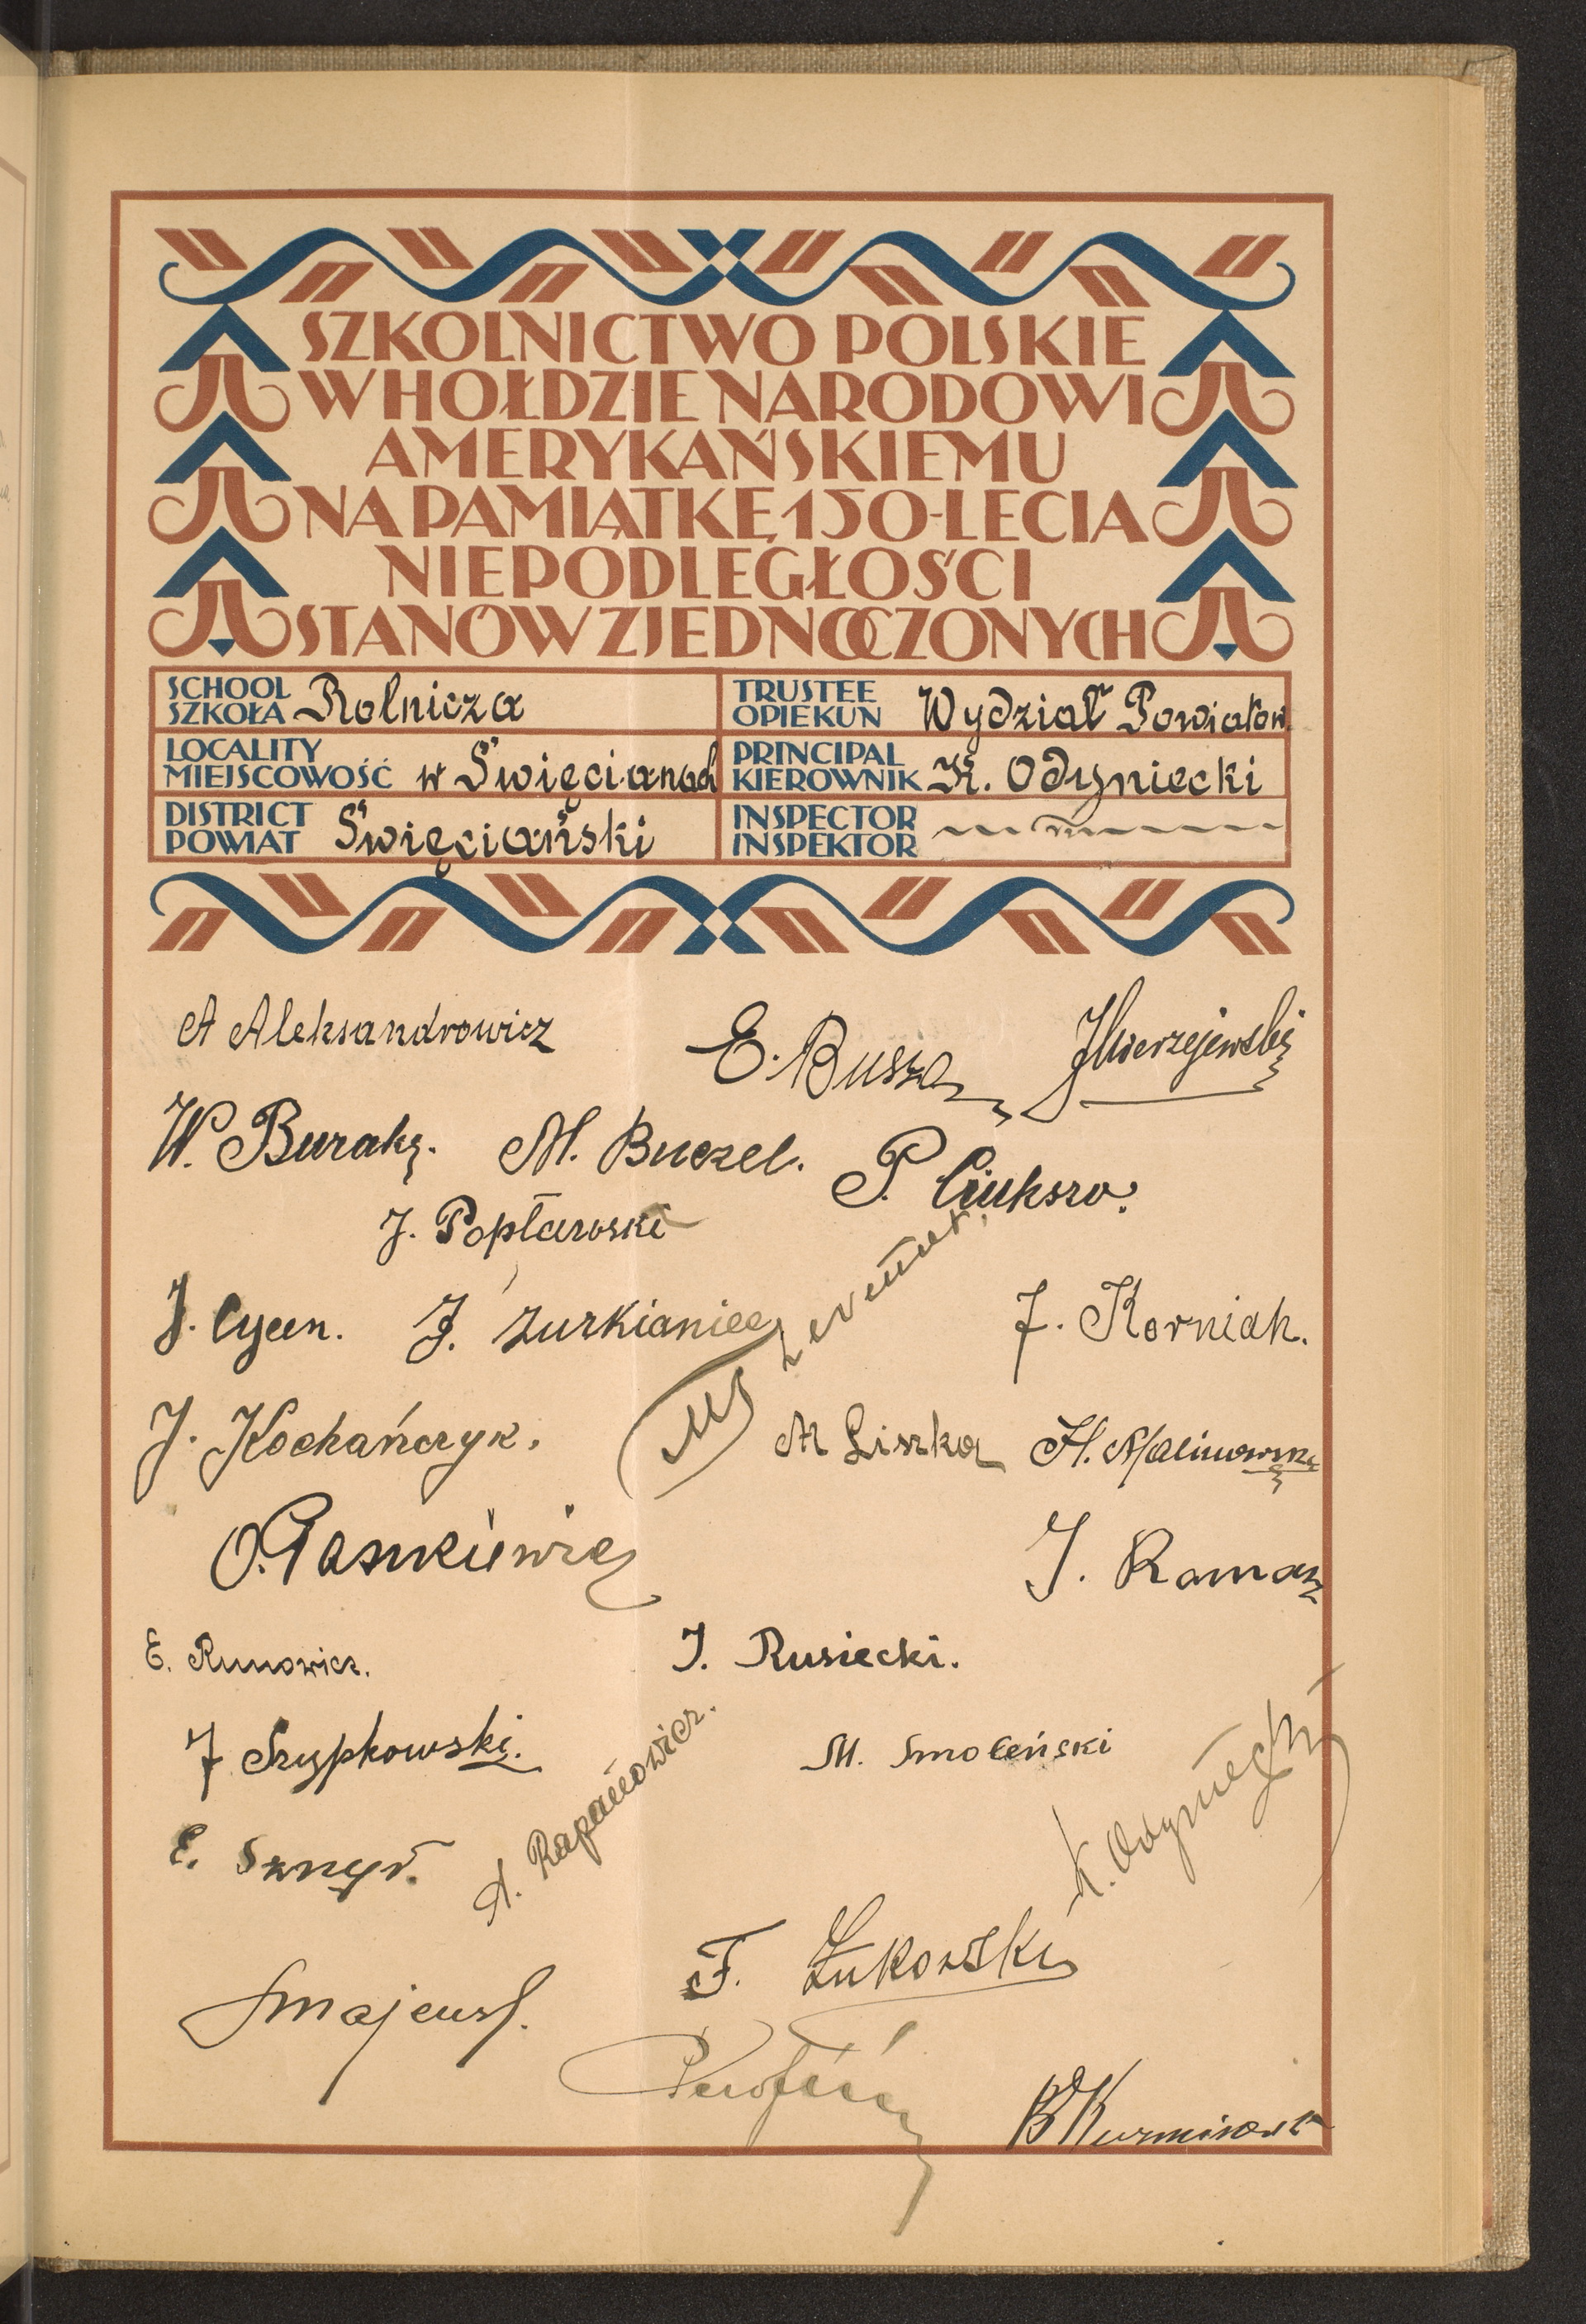 SZKOLNICTWO POLSKIE
W HOŁDZIE NARODOWI
AMERYKAŃSKIEMU
NA PAMIĄTKĘ 150-LECIA
NIEPODLEGŁOŚCI
STANÓW ZJEDNOCZONYCH
SCHOOL
SZKOŁA Rolnicza
TRUSTEE
OPIEKUN Wydział Powiatow.
LOCALITY
MIEJSCOWOŚĆ w Święcianach
PRINCIPAL
KIEROWNIK K. Odyniecki
DISTRICT
POWIAT Święciański
INSPECTOR
INSPEKTOR
A Aleksandrowicz
E. Busza
W. Buraky.
M. Buczel.
P. Ciukszo.
J. Popławski
J. Cycen.
J. Żurkianiec
J. Korniak.
J. Kochańczyk.
M Liszka
H. Malinowski
O. Paszkiewicz
J. Roman
E. Runowicz.
J. Rusiecki.
J Szypkowski.
A. Rapanowicz.
M. Smoleński
K. Odyniecki
E. Sznyr.
F. Żukowski